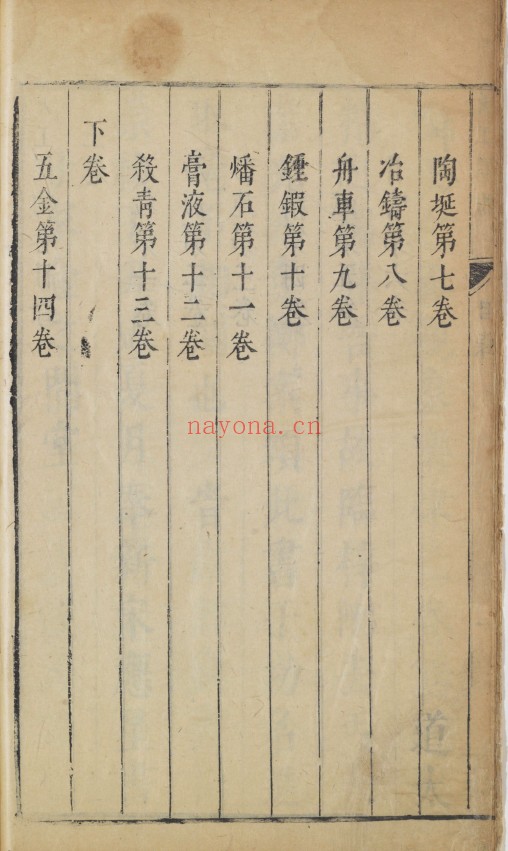 陶埏第七卷
冶鑄第八卷
舟車第九卷
鍾鍜第十卷
燔石第十一卷
膏液第十二卷
殺青第十三卷
下卷
五金第十四卷
nayona.cn